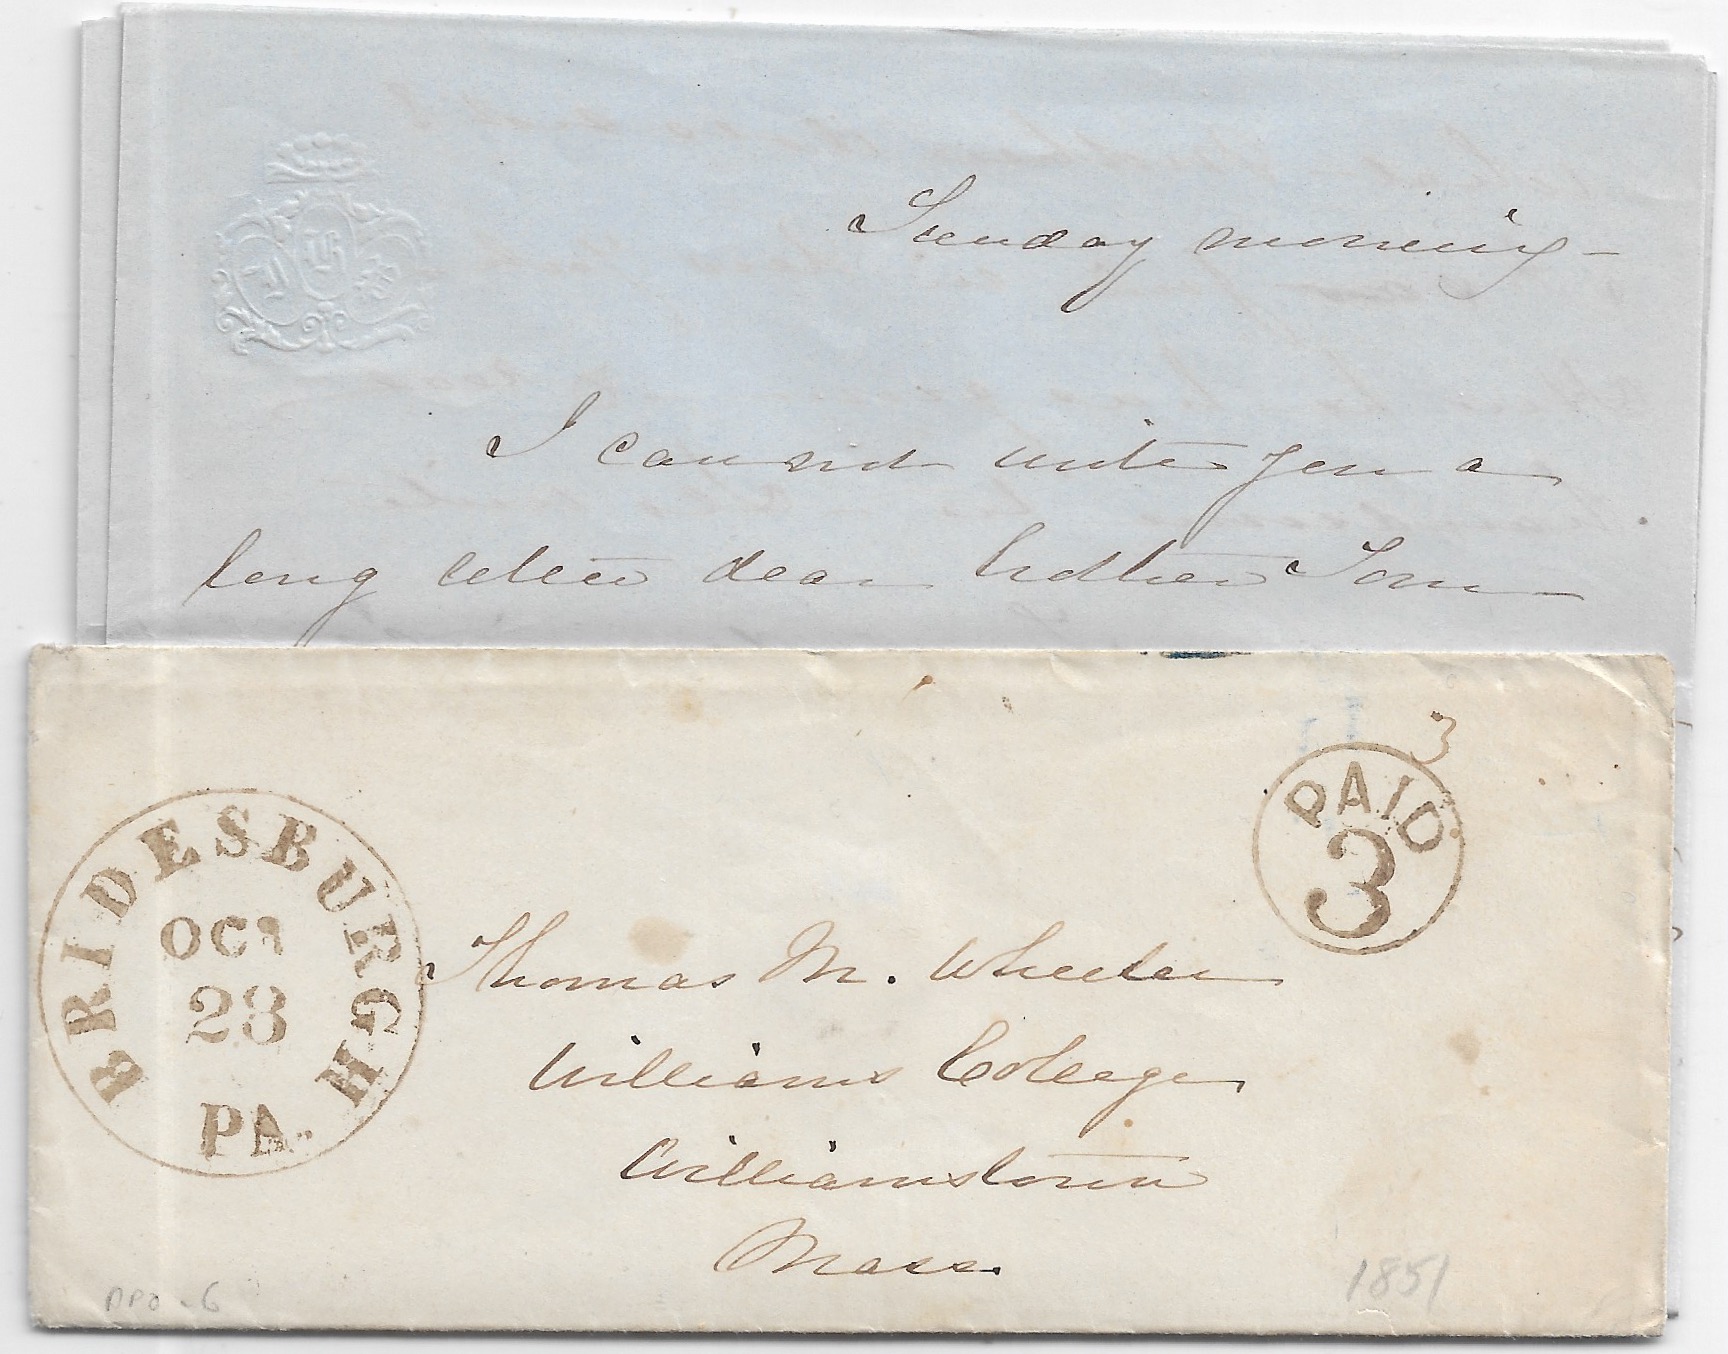 Sunday morning –
I cannot write you a
long letter dear brother Tom –
3
PAID
3
BRIDESBURGH
OCT
23
PA.
Thomas M. Wheeler
Williams College
Williamstown
Mass.
DPO - 6
1851